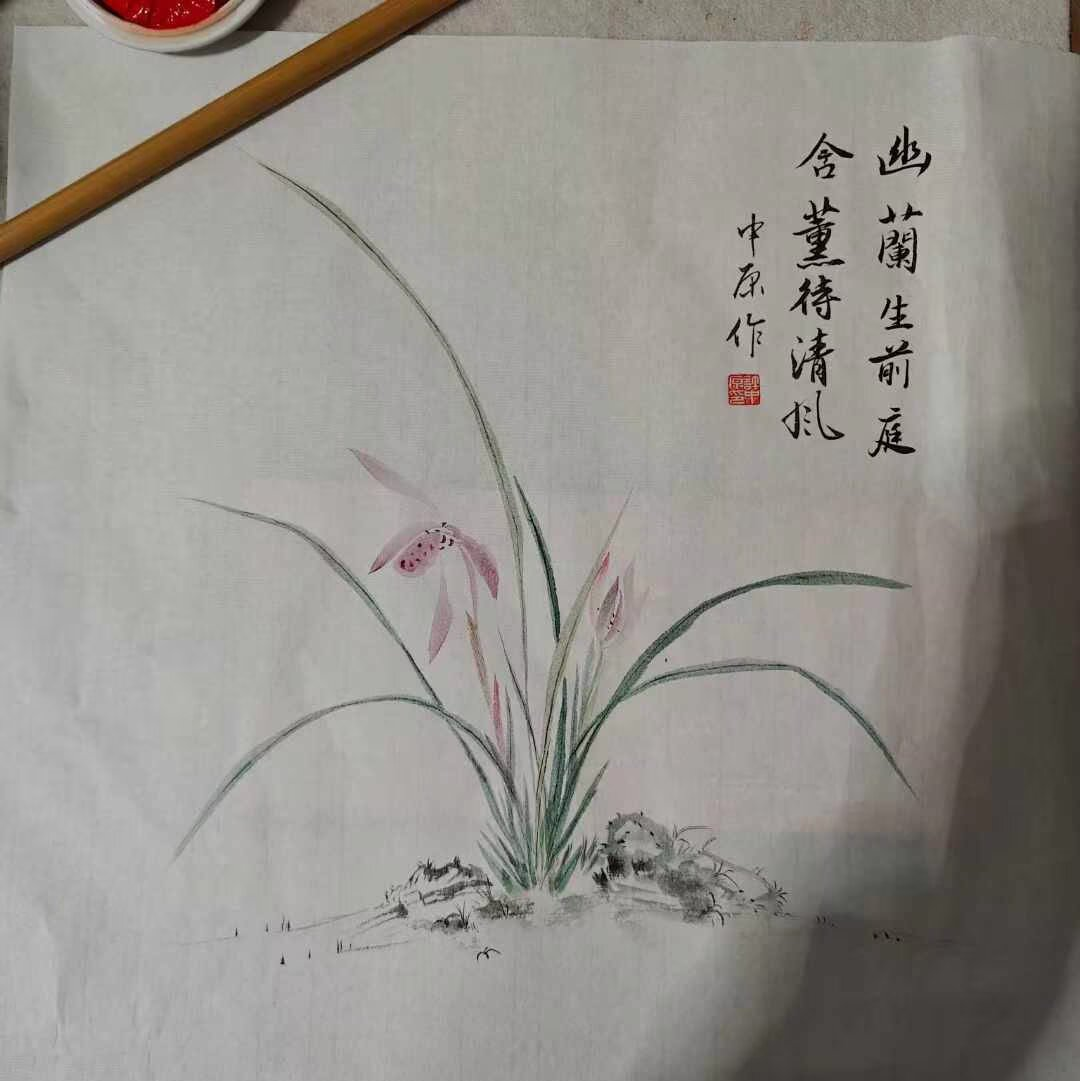 幽蘭生前庭
含薰待清風
中原作